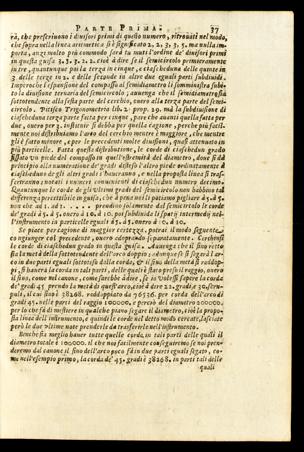 PARTE PRIMA. 37
rà, che prescriuono i diuisori primi di questo numero, ritrouati nel modo,
che sopra nella linea aritmetica si è significato 2. 2. 3. 3. 5. ma nulla im-
porta, anzi molto più commodo sarà tu muti l'ordine de' diuisori primi
in questa guisa 3. 3. 5. 2. 2. cioè à dire se il semicircolo primieramente
in tre, quantunque poi la terza in cinque, e ciascheduna delle quinte in
3. delle terze in 2. e delle seconde in altre due eguali parti subdiuidi.
Improche l'espansione del compasso al semidiametro
to la diuisione ternaria del semicircolo; auenga che il semidiametro stesso
sottotendente alla sesta parte del cerchio, ouero alla terza parte del semi-
circolo. Pitisco Trigonometric lib. 2. prop. 29. mà la subdiuisione di
ciascheduna terza parte fatta per cinque, pare che auanti quella fatta per
due, ouero per 2. instituir si debba per quella cagione, perche più facil-
mente noi distribuimo l'arco del cerchio mentre è maggiore, che mentre
gli è fatto minore, e per le precedenti molte diuisioni, quasi attenuato in
più particelle. Fatta questa distributione, le corde di ciascheduno grado
fissato vn piede del compasso in quell'estremità del diametro, doue si dà
principio alla numeratione de' gradi disteso l'altro piede ordinatamente à
ciascheduno de gli altri gradi s'haueranno, e nella proposta linea si tras-
feriranno notati i numeri conuenienti di ciascheduno numero decimo.
Quantunque le corde de gli vltimi gradi del semicircolo non habbino tal
differenza percettibile in guisa, che à pena ne li patiamo pigliare à 5. à 5.
non che ad 1. ad 1. prendino solamente dal semicircolo le corde
de' gradi à 5. à 5. ouero à 10. à 10. poi subdiuide li spatij intermedij nel-
l'instrumento in particelle eguali à 5. à 5. ouero à 10. à 10.
Se piace per cagione di maggior certezza, potrai il modo seguente
congiunger col precedente, ouero adoprarlo separatamente. Cerchinsi
le corde di ciascheduno grado in questa guisa. Auuenga che il sino retto
sia la metà della sottotendente dell'arco doppio;
co in due parti eguali sottesi della corda.
pi, si hauerà la corda in tali parti, delle quali è stato preso il raggio, ouero
il sino, come nel canone, come sarebbe à dire, se io volessi sapere la corda
de' gradi 45 prendo la metà di quest'arco, cioè à dire 22. gradi, e 30. scru-
puli, il cui sino è 38268. raddoppiato dà 76536. per corda dell'arco di
gradi 45. nelle parti del raggio 100000, e perciò del diametro 200000,
per lo che fà di mestiere in qualche piano segare il diametro, cioè la propo-
sta linea dell'intrumento, e quindi le corde nel detto modo cercate, lasciate
però le due vltime note prenderle da trasferirle nell'instrumento.
Benche sia meglio hauer tutte quelle corde, in tali parti delle quali il
diametro totale è 100000. il che noi facilmente conseguiremo se noi pren-
deremo dal canone il sino dell'arco poco fà in due parti eguali segato, co-
me nell'esempio primo, la corda de' 45. gradi è 38268. in parti tali delle
quali